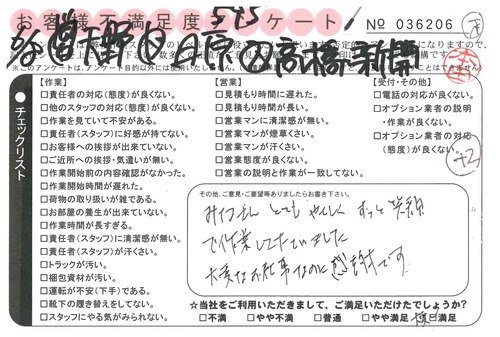 お客様不満足度 575 ケート!
№ 036206
※このアンケートは、アンケート目的以外には使用いたしま
チェックリスト
【作業】
□責任者の対応(態度)が良くない。
□他のスタッフの対応(態度)が良くない。
□作業を見ていて不安がある。
□責任者(スタッフ)に好感が持てない。
□お客様への挨拶が出来ていない。
□ご近所への挨拶・気遣いが無い。
□作業開始前の内容確認がなかった。
□作業開始時間が遅れた。
□荷物の取り扱いが雑である。
□お部屋の養生が出来ていない。
□作業時間が長すぎる。
□責任者(スタッフ)に清潔感が無い。
□責任者(スタッフ)が汗くさい。
□トラックが汚い。
□梱包資材が汚い。
□運転が不安(下手)である。
□靴下の履き替えをしてない。
□スタッフにやる気がみられない。
【営業】
□見積もり時間に遅れた。
□見積もり時間が長い。
□営業マンに清潔感が無い。
□営業マンが煙草くさい。
□営業マンが汗くさい。
□営業態度が良くない。
□営業の説明と作業が一致してない。
【受付・その他】
□電話の対応が良くない。
□オプション業者の説明
・作業が良くない。
□オプション業者の対応
(態度)が良くない。
+2
その他、ご意見・ご要望等ありましたらお書き下さい。
みなさん とても やさしく ずっと 笑顔
で作業して下さいました
大変なお仕事なのに感謝です。
☆当社をご利用いただきまして、ご満足いただけたでしょうか?
□不満 □やや不満 □普通 □やや満足 □満足